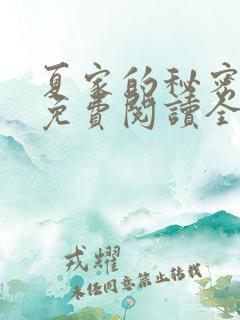 夏家的秘密
免費閱讀全
戎耀
未经同意禁止转载